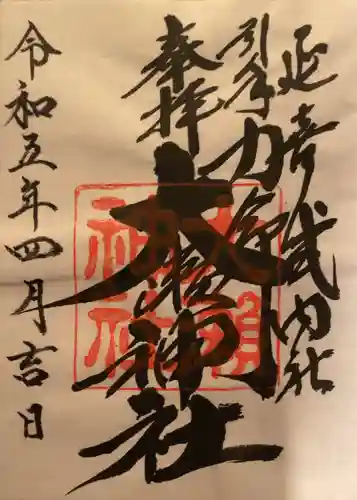 延喜式内社
引手力命
奉拝
大瀬神社
令和五年四月吉日